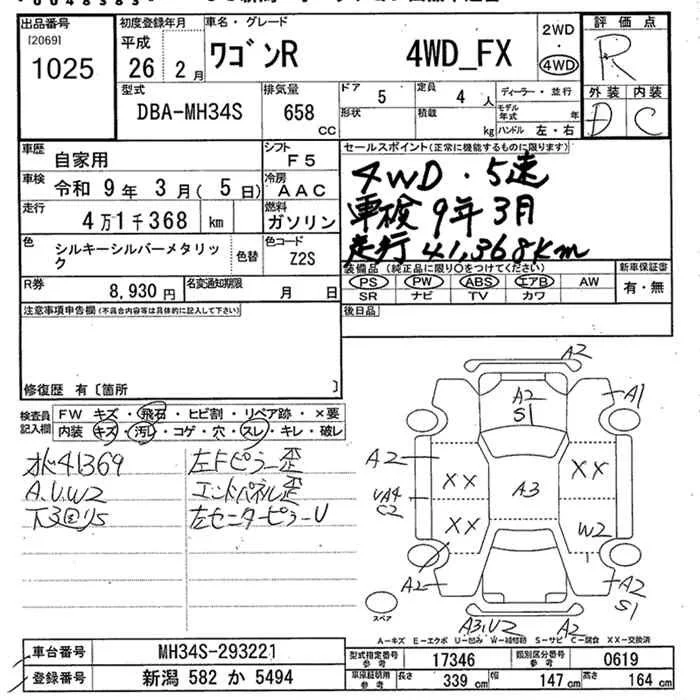 出品番号 初度登録年月 車名・グレード 2WD 評価点
[2069] 平成 ワゴンR 4WD_FX 4WD R
1025 26 2月
型式 排気量 ドア 5 定員 4人 ディーラー・並行 外装 内装
DBA-MH34S 658 CC 形状 積載 kg モデル年式 年 D C
ハンドル 左・右
車歴 自家用 シフト F5 セールスポイント(正常に機能するものに限ります)
車検 令和 9年 3月( 5日) 冷房 AAC 4WD・5速
走行 4万1千368 km 燃料 ガソリン 車検9年3月
色 シルキーシルバーメタリック 色替 色コード Z2S 走行41,368Km
R券 8,930円 名変通知期限 月 日 装備品(純正品に限り○をつけてください) 新車保証書
PS PW ABS エアB AW 有・無
SR ナビ TV カワ
注意事項申告欄(不具合内容等は具体的に記入して下さい) 後日品
修復歴 有〔箇所 〕
検査員記入欄 FW キズ・飛石・ヒビ割・リペア跡・×要
内装 キズ・汚レ・コゲ・穴・スレ・キレ・破レ
オド41369 左Fピラー歪
A.U.W2 エンドパネル歪
下3回リ5 左センターピラーU
A2
A2 A1
S1
A2 XX XX
A3
UA4 C2 XX W2
A2 A2
S1
スペア A3,U2 A2
A-キズ E-エクボ U-凹み W-補修跡 S-サビ C-腐食 XX-交換済
車台番号 MH34S-293221 型式指定番号 参考 17346 類別区分番号 参考 0619
登録番号 新潟 582 か 5494 車庫証明用 参考 長さ 339 cm 幅 147 cm 高さ 164 cm